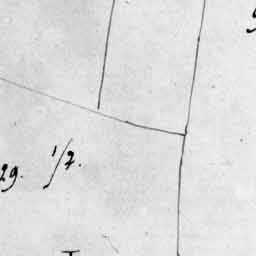 29. 1/7.